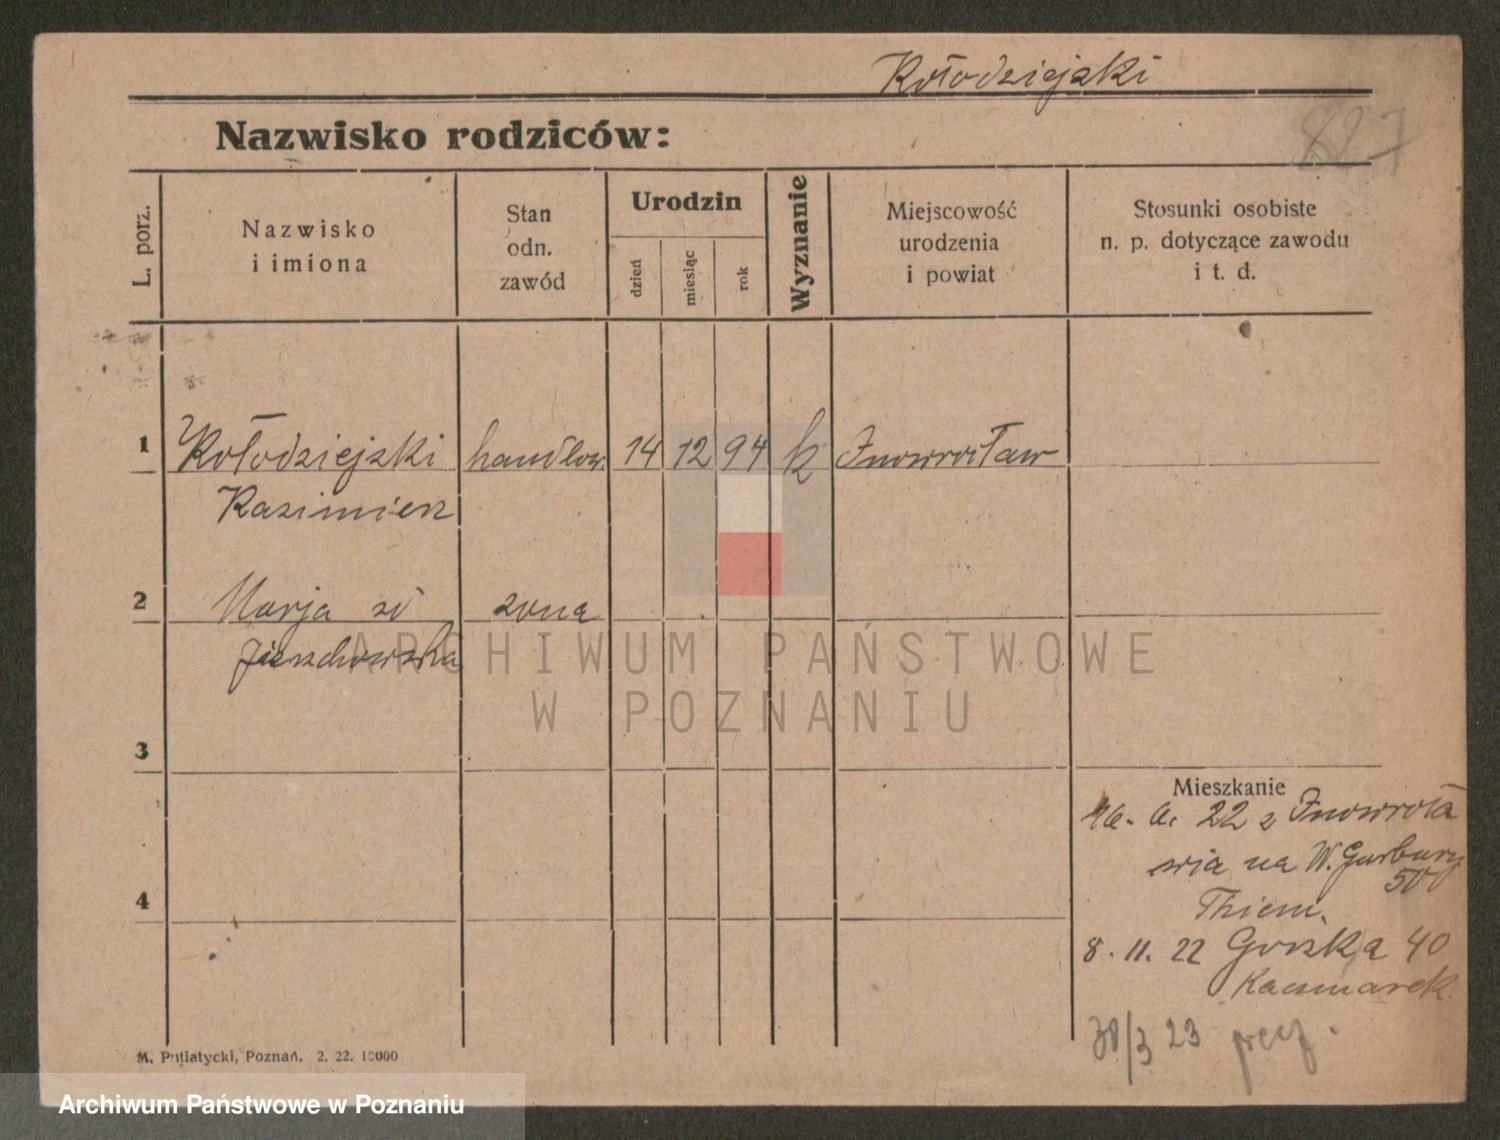 Kołodziejski
827
Nazwisko rodziców:
L. porz.
Nazwisko
i imiona
Stan
odn.
zawód
Urodzin
dzień
miesiąc
rok
Wyznanie
Miejscowość
urodzenia
i powiat
Stosunki osobiste
n. p. dotyczące zawodu
i t. d.
1 Kołodziejski handlow. 14 12 94 k Inowrocław
Kazimierz
2 Marja zd żona
3
4
Mieszkanie
22 z Inowrocła
wia na W. Garbary
50
Thiem.
8. 11. 22 Górska 40
Kaczmarek.
30/3 23
M. Putiatycki, Poznań. 2. 22. 10000
ARCHIWUM PAŃSTWOWE
W POZNANIU
Archiwum Państwowe w Poznaniu